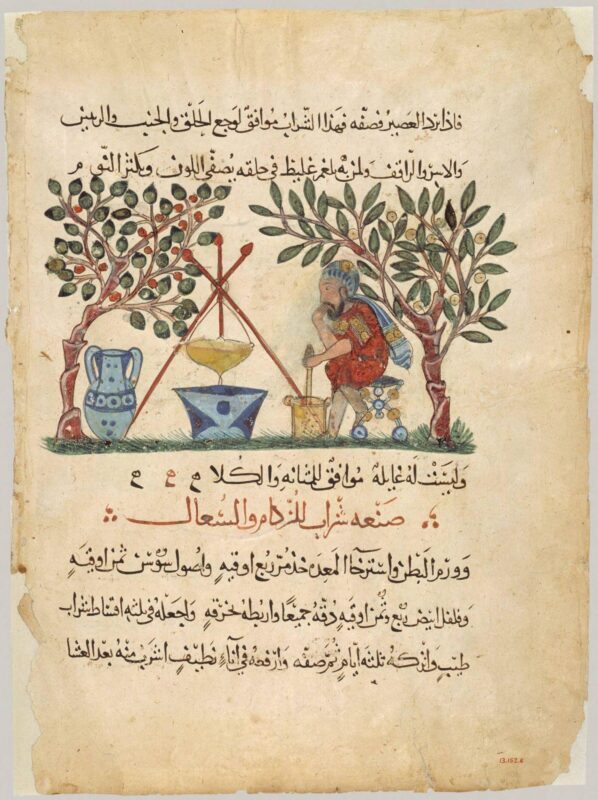 فاذا برد العصير فصفه فهذا الشراب موافق لوجع الحلق والجنب والرئين
والاسر والراقف ولمن به بلغم غليظ في حلقه يصفي اللون ويكثر النوم
وليست له غايلة موافق للمثانه والكلا
صنعه شراب للزكام والسعال
وورم البطن واسترخا المعده خذ مر ربع اوقيه واصول سوسن ثمن اوقيه
وفلفل ابيض ربع وثمن اوقيه دقه جميعا واربطه بخرقه واجعله في ثلثه اقساط شراب
طيب واتركه ثلثه ايام ثم صفه وارفعه في اناء نظيف اشرب منه بعد العشا
13.152.6